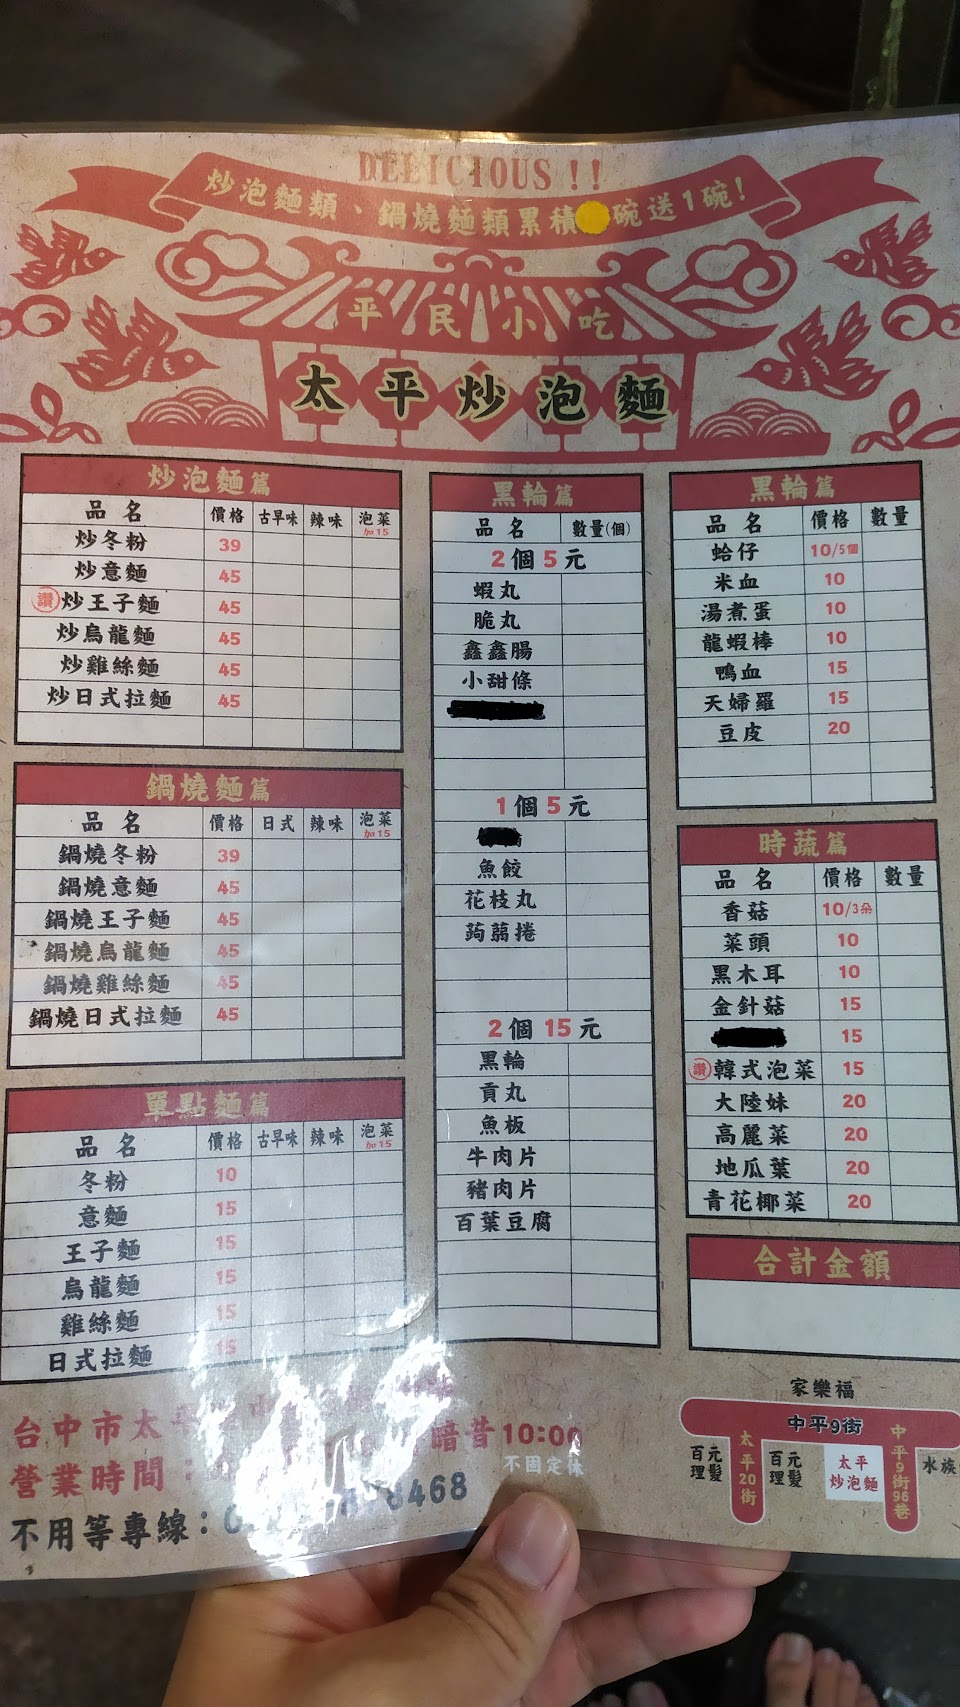 DELICIOUS !!
炒泡麵類、鍋燒麵類累積 碗送1碗!
平民小吃
太平炒泡麵
炒泡麵篇
品名 價格 古早味 辣味 泡菜 加15
炒冬粉 39
炒意麵 45
讚 炒王子麵 45
炒烏龍麵 45
炒雞絲麵 45
炒日式拉麵 45
鍋燒麵篇
品名 價格 日式 辣味 泡菜 加15
鍋燒冬粉 39
鍋燒意麵 45
鍋燒王子麵 45
鍋燒烏龍麵 45
鍋燒雞絲麵 45
鍋燒日式拉麵 45
單點麵篇
品名 價格 古早味 辣味 泡菜 加15
冬粉 10
意麵 15
王子麵 15
烏龍麵 15
雞絲麵 15
日式拉麵 15
黑輪篇
品名 數量(個)
2個5元
蝦丸
脆丸
鑫鑫腸
小甜條
1個5元
魚餃
花枝丸
蒟蒻捲
2個15元
黑輪
貢丸
魚板
牛肉片
豬肉片
百葉豆腐
黑輪篇
品名 價格 數量
蛤仔 10/5個
米血 10
湯煮蛋 10
龍蝦棒 10
鴨血 15
天婦羅 15
豆皮 20
時蔬篇
品名 價格 數量
香菇 10/3朵
菜頭 10
黑木耳 10
金針菇 15
15
讚 韓式泡菜 15
大陸妹 20
高麗菜 20
地瓜葉 20
青花椰菜 20
合計金額
台中市太
營業時間： 暗昔10:00
不固定休
不用等專線： 8468
家樂福
中平9街
百元理髮
太平20街
百元理髮
太平炒泡麵
中平9街96巷
水族